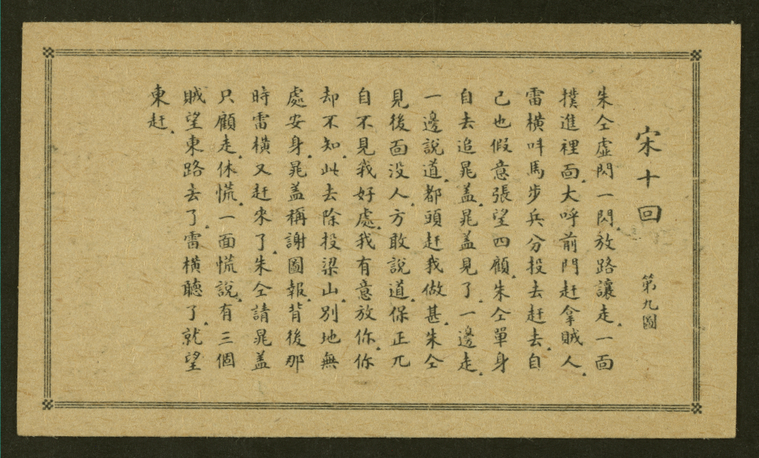 宋十回 第九圖
朱仝虛閃一閃．放路讓走．一面
撲進裡面．大呼前門赶拿賊人．
雷橫呌馬步兵分投去赶去．自
己也假意張望四顧．朱仝單身
自去追晁盖．晁盖見了．一邊走．
一邊說道．都頭赶我做甚．朱仝
見後面没人．方敢說道．保正兀
自不見我好處．我有意放你．你
却不知．此去除投梁山．别地無
處安身．晁盖稱謝圖報．背後那
時雷橫又赶來了．朱仝請晁盖
只顧走．休慌．一面慌說．有三個
賊望東路去了．雷橫聽了．就望
東赶．